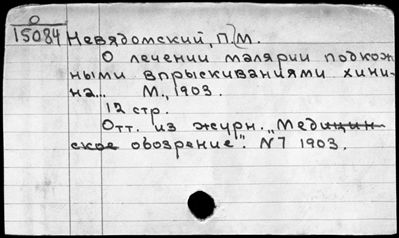 О
15084 Невядомский, П. М.
О лечении малярии подкож
ными впрыскиваниями хини-
на... М., 1903.
12 стр.
Отт. из журн. „Медицин
ское обозрение". N7 1903.